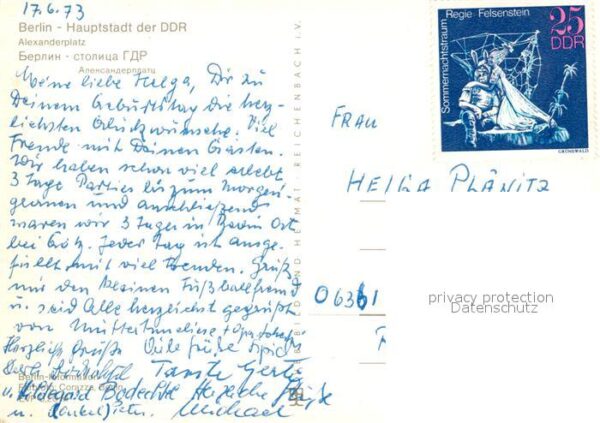 17.6.73
Berlin - Hauptstadt der DDR
Alexanderplatz
Берлин - столица ГДР
Александерплатц
Meine liebe Helga, Dir zu
Deinem Geburtstag die herz-
lichsten Glückwünsche. Viel
Freude mit Deinen Gästen.
Wir haben schon viel erlebt
3 Tage Parties bis zum Morgen-
grauen und anschließend
waren wir 3 Tage in Ost
bei Götz. Jeder Tag ist ausge-
füllt mit viel Freuden. Grüß
mir den kleinen Fußballfreund
u. seid Alle herzlichst gegrüßt
von Opa
Herzliche Grüße
Tante Gerda
u. Hildegard Herzliche Grüße
u. Michael
Berlin-Information
BILD UND HEIMAT REICHENBACH i. V.
Sommernachtstraum
Regie: Felsenstein
25
DDR
GRÜNEWALD
FRAU
HELGA PLÄNITZ
privacy protection
Datenschutz